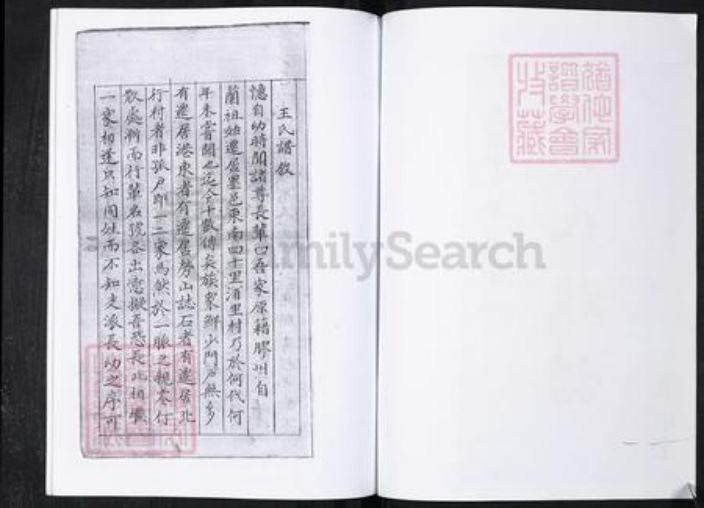 王氏譜敘
憶自幼時聞諸尊長輩曰吾家原籍膠州自
蘭祖始遷居墨邑東南四十里酒里村乃於何代何
年未嘗聞也迄今十數傳矣族衆鮮少門戶無多
有遷居港東者有遷居勞山誌石者有遷居北
行村者非孤戶即一二家焉然於一脈之親零仃
散處 而行輩名號各出 擬吾恐長此相
一家相逢只知同姓而不知支派長幼之序可
FamilySearch
譜學會
收藏